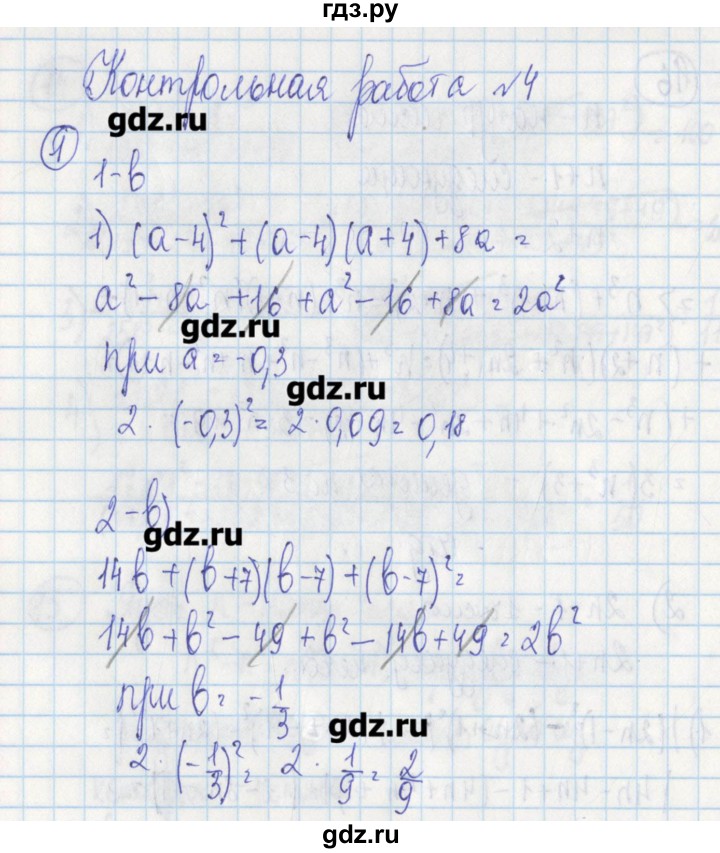 гдз.ру
Контрольная работа №4
gdz.ru
1
1-в
1) (a-4)² + (a-4)(a+4) + 8a =
a² - 8a + 16 + a² - 16 + 8a = 2a²
gdz.ru
при a = -0,3
gdz.ru
2 · (-0,3)² = 2 · 0,09 = 0,18
2-в)
gdz.ru
14в + (в+7)(в-7) + (в-7)² =
14в + в² - 49 + в² - 14в + 49 = 2в²
при в = -1/3
gdz.ru
2 · (-1/3)² = 2 · 1/9 = 2/9
gdz.ru